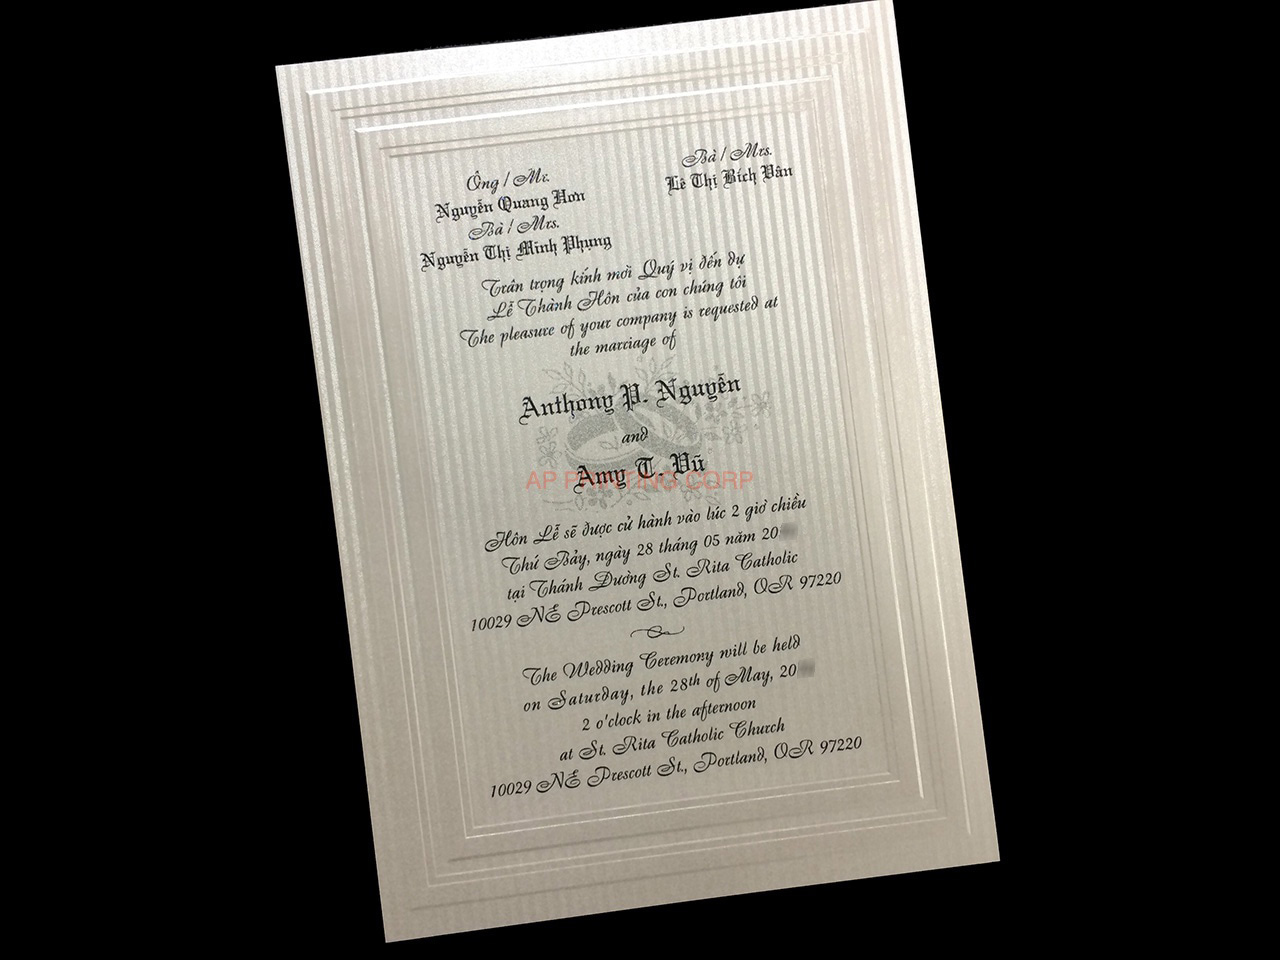 Ông / Mr.
Nguyễn Quang Hơn
Bà / Mrs.
Nguyễn Thị Minh Phụng
Bà / Mrs.
Lê Thị Bích Vân
Trân trọng kính mời Quý vị đến dự
Lễ Thành Hôn của con chúng tôi
The pleasure of your company is requested at
the marriage of
Anthony P. Nguyễn
and
Amy T. Vũ
AP PRINTING CORP
Hôn Lễ sẽ được cử hành vào lúc 2 giờ chiều
Thứ Bảy, ngày 28 tháng 05 năm 20
tại Thánh Đường St. Rita Catholic
10029 NE Prescott St., Portland, OR 97220
The Wedding Ceremony will be held
on Saturday, the 28th of May, 20
2 o'clock in the afternoon
at St. Rita Catholic Church
10029 NE Prescott St., Portland, OR 97220